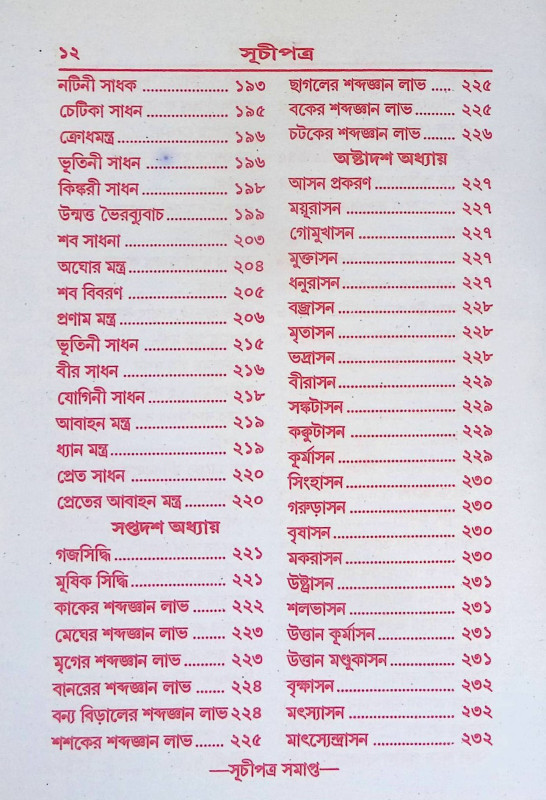 ১২
সূচীপত্র
নটিনী সাধক .................. ১৯৩
চেটিকা সাধন .................. ১৯৫
ক্রোধমন্ত্র .................. ১৯৬
ভূতিনী সাধন .................. ১৯৬
কিঙ্করী সাধন .................. ১৯৮
উন্মত্ত ভৈরব্যুবাচ .............. ১৯৯
শব সাধনা .................. ২০৩
অঘোর মন্ত্র .................. ২০৪
শব বিবরণ .................. ২০৫
প্রণাম মন্ত্র .................. ২০৬
ভূতিনী সাধন .................. ২১৫
বীর সাধন .................. ২১৬
যোগিনী সাধন .................. ২১৮
আবাহন মন্ত্র .................. ২১৯
ধ্যান মন্ত্র .................. ২১৯
প্রেত সাধন .................. ২২০
প্রেতের আবাহন মন্ত্র ........... ২২০
সপ্তদশ অধ্যায়
গজসিদ্ধি .................. ২২১
মূষিক সিদ্ধি .................. ২২১
কাকের শব্দজ্ঞান লাভ ........ ২২২
মেঘের শব্দজ্ঞান লাভ ........ ২২৩
মৃগের শব্দজ্ঞান লাভ ......... ২২৩
বানরের শব্দজ্ঞান লাভ ....... ২২৪
বন্য বিড়ালের শব্দজ্ঞান লাভ ২২৪
শশকের শব্দজ্ঞান লাভ ....... ২২৫
ছাগলের শব্দজ্ঞান লাভ ...... ২২৫
বকের শব্দজ্ঞান লাভ ......... ২২৫
চটকের শব্দজ্ঞান লাভ ....... ২২৬
অষ্টাদশ অধ্যায়
আসন প্রকরণ .................. ২২৭
ময়ূরাসন .................. ২২৭
গোমুখাসন .................. ২২৭
মুক্তাসন .................. ২২৭
ধনুরাসন .................. ২২৭
বজ্রাসন .................. ২২৮
মৃতাসন .................. ২২৮
ভদ্রাসন .................. ২২৮
বীরাসন .................. ২২৯
সঙ্কটাসন .................. ২২৯
কক্কুটাসন .................. ২২৯
কূর্মাসন .................. ২২৯
সিংহাসন .................. ২৩০
গরুড়াসন .................. ২৩০
বৃষাসন .................. ২৩০
মকরাসন .................. ২৩০
উষ্ট্রাসন .................. ২৩১
শলভাসন .................. ২৩১
উত্তান কূর্মাসন .................. ২৩১
উত্তান মণ্ডুকাসন .............. ২৩১
বৃক্ষাসন .................. ২৩২
মৎস্যাসন .................. ২৩২
মাৎস্যেন্দ্রাসন .................. ২৩২
—সূচীপত্র সমাপ্ত—